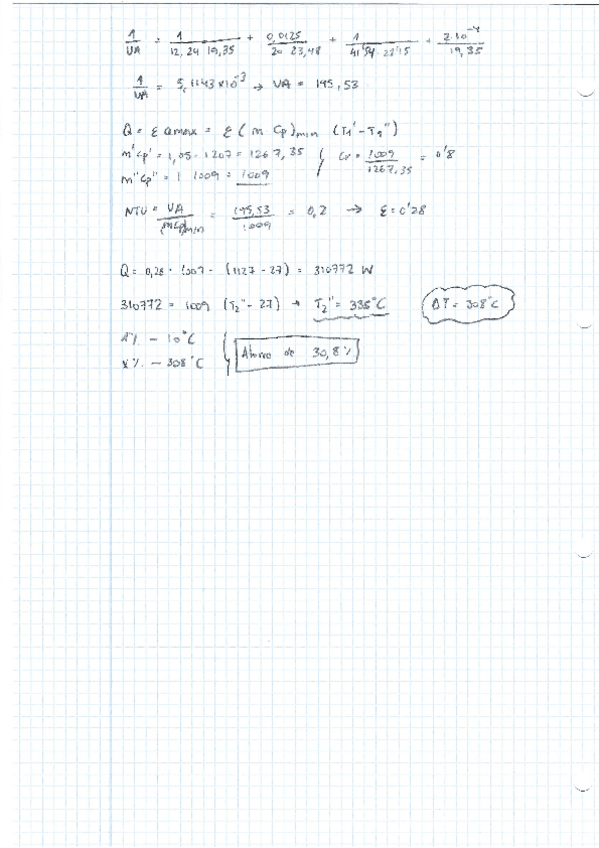 1/UA = 1/(12,24 · 19,35) + 0,0125/(20 · 23,48) + 1/(41'54 · 28'15) + 2·10⁻⁴/19,35
1/UA = 5,1143×10⁻³ → UA = 195,53
Q = ε Qmax = ε (m Cp)min (T1' - T1'')
m'Cp' = 1,05 · 1207 = 1267,35
m''Cp'' = 1 · 1009 = 1009
Cr = 1009/1267,35 = 0'8
NTU = UA/(mCp)min = 195,53/1009 = 0,2 → ε = 0'28
Q = 0,28 · 1007 · (1127 - 27) = 310772 W
310772 = 1009 (T2'' - 27) → T2'' = 335°C
ΔT = 308°C
1% - 10°C
X% - 308°C
Ahorro de 30,8%